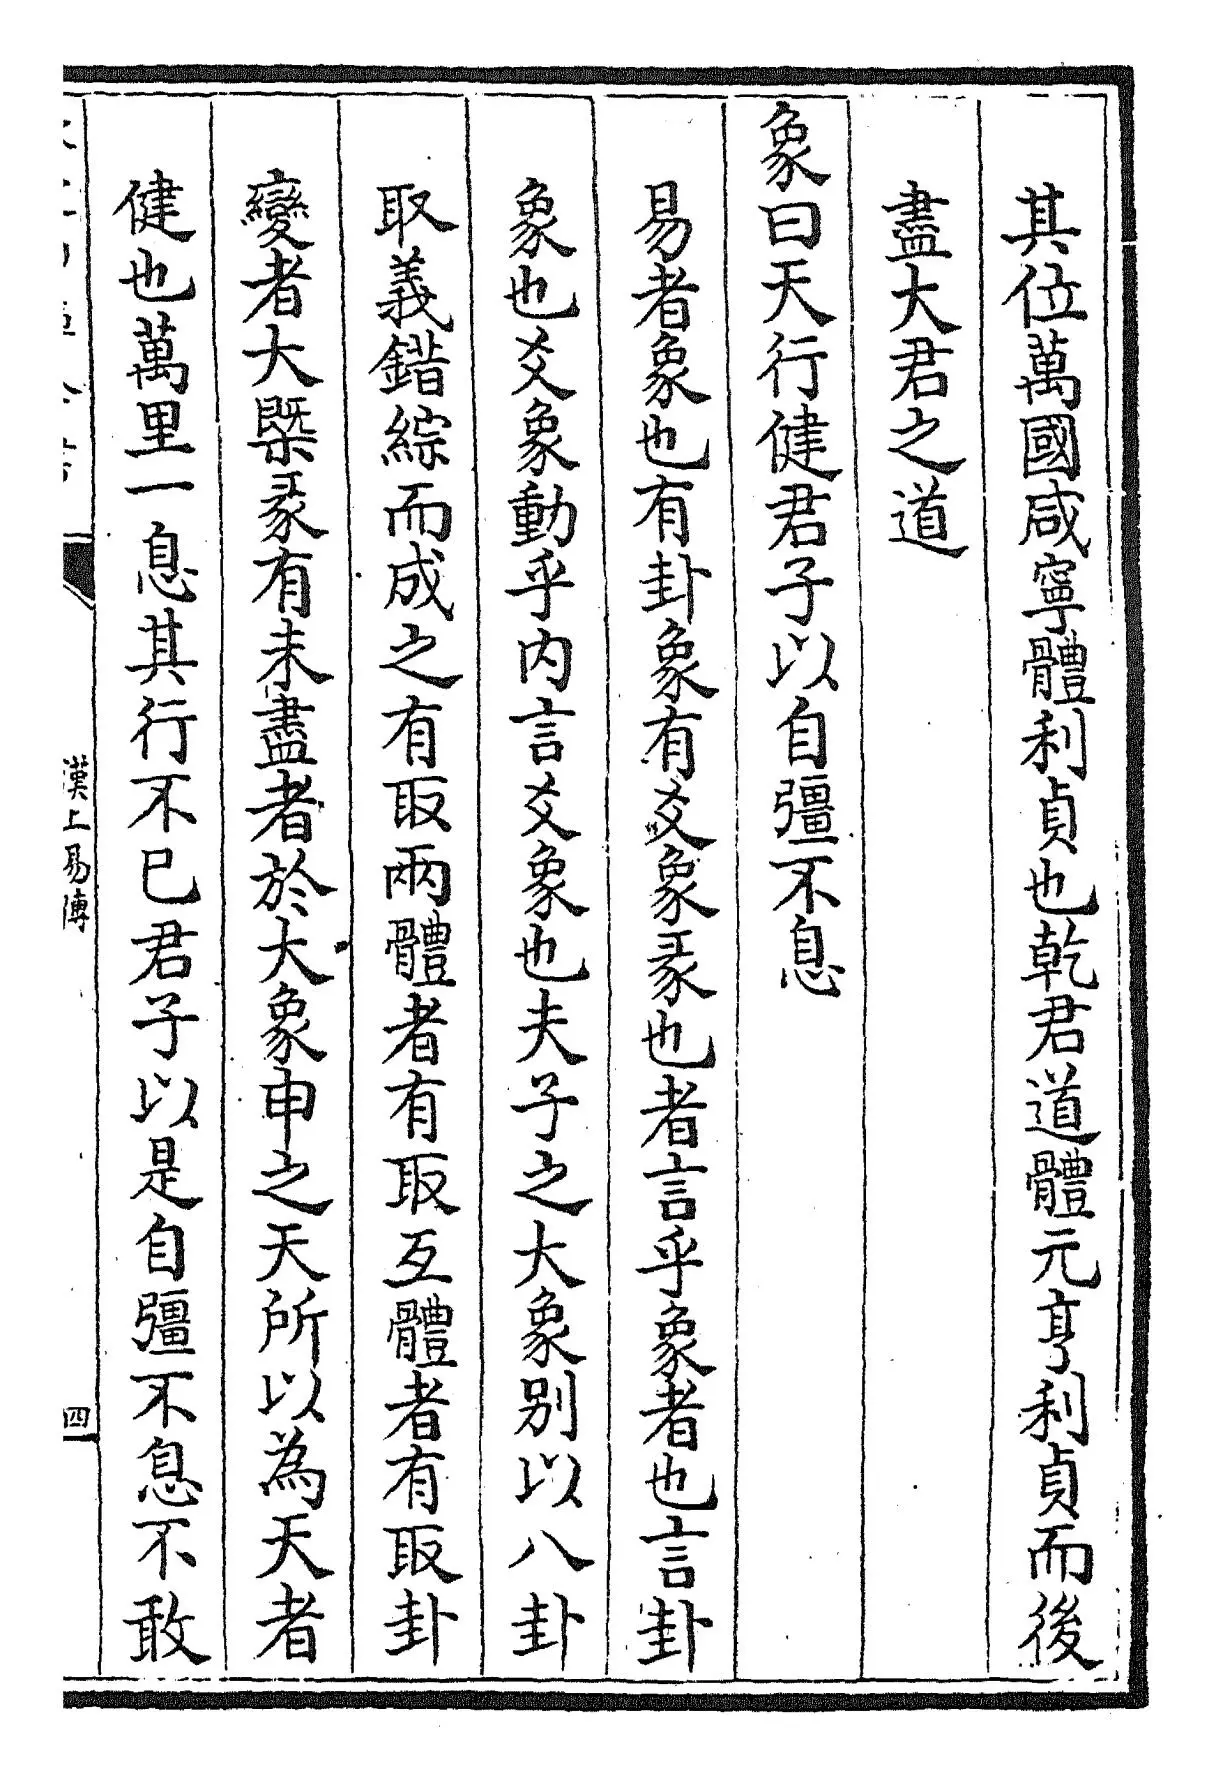 其位萬國咸寧體利貞也乾君道體元亨利貞而後
盡大君之道
象曰天行健君子以自彊不息
易者象也有卦象有爻象彖也者言乎象者也言卦
象也爻象動乎内言爻象也夫子之大象别以八卦
取義錯綜而成之有取兩體者有取互體者有取卦
變者大槩彖有未盡者於大象申之天所以為天者
健也萬里一息其行不已君子以是自彊不息不敢
漢上易傳
四